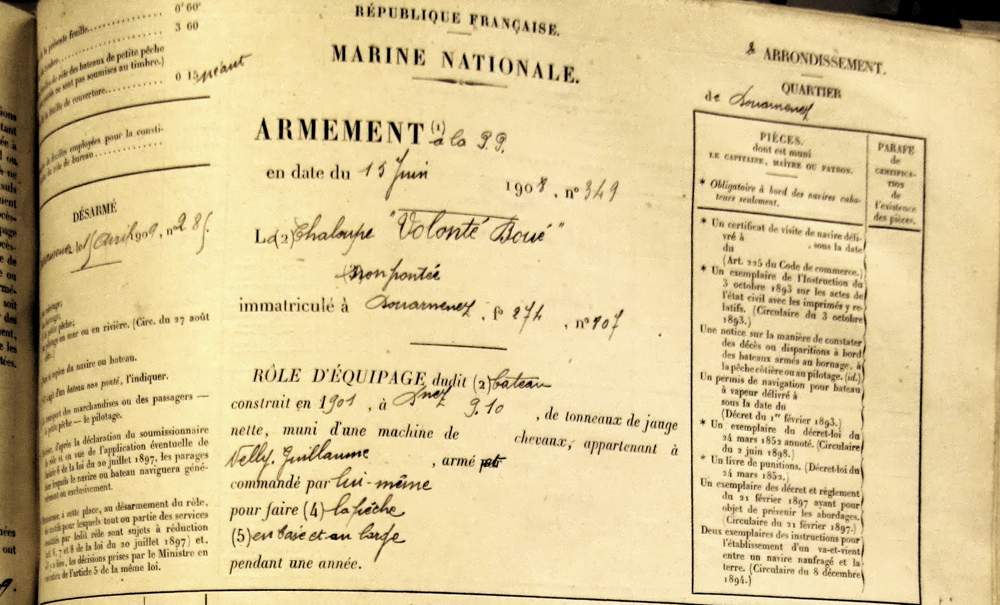 présente feuille............ 0'60"
3 60
rôle des bateaux de petite pêche
ne sont pas soumises au timbre.)
feuille de couverture........... 0 15 néant
feuilles employées pour la consti-
rôle de bureau
DÉSARMÉ
le 15 Avril 1909, n° 285.
pêche;
en mer ou en rivière. (Circ. du 27 août
du navire ou bateau.
bateau non ponté, l'indiquer.
transport des marchandises ou des passagers —
pêche — le pilotage.
d'après la déclaration du soumissionnaire
rôle et en vue de l'application éventuelle de
de la loi du 20 juillet 1897, les parages
lesquels le navire ou bateau naviguera géné-
ou exclusivement.
à cette place, au désarmement du rôle,
pour lesquels tout ou partie des services
ledit rôle sont sujets à réduction
6, 7 et 8 de la loi du 20 juillet 1897) et,
les décisions prises par le Ministre en
de l'article 5 de la même loi.
RÉPUBLIQUE FRANÇAISE.
MARINE NATIONALE.
ARMEMENT (1) à la P.P.
en date du 15 Juin 1908, n° 349
La (2) Chaloupe "Volonté Boué"
(non pontée
immatriculé à Douarnenez, f° 274, n° 907
RÔLE D'ÉQUIPAGE dudit (2) bateau
construit en 1901, à Dnez 9.10, de tonneaux de jauge
nette, muni d'une machine de chevaux, appartenant à
Velly, Guillaume, armé par
commandé par lui-même
pour faire (4) la pêche
(5) en baie et au large
pendant une année.
2 ARRONDISSEMENT.
QUARTIER
de Douarnenez
PIÈCES.
dont est muni
LE CAPITAINE, MAÎTRE OU PATRON.
* Obligatoire à bord des navires cabo-
teurs seulement.
PARAFE
de
CERTIFICA-
TION
de
l'existence
des pièces.
* Un certificat de visite de navire déli-
vré à , sous la date
du
(Art. 225 du Code de commerce.)
* Un exemplaire de l'Instruction du
3 octobre 1893 sur les actes de
l'état civil avec les imprimés y re-
latifs. (Circulaire du 3 octobre
1893.)
Une notice sur la manière de constater
des décès ou disparitions à bord
des bateaux armés au bornage, à
la pêche côtière ou au pilotage. (id.)
Un permis de navigation pour bateau
à vapeur délivré à
sous la date du
(Décret du 1er février 1893.)
* Un exemplaire du décret-loi du
24 mars 1852 annoté. (Circulaire
du 2 juin 1898.)
* Un livre de punitions. (Décret-loi du
24 mars 1852.)
Un exemplaire des décret et règlement
du 21 février 1897 ayant pour
objet de prévenir les abordages.
(Circulaire du 21 février 1897.)
Deux exemplaires des instructions pour
l'établissement d'un va-et-vient
entre un navire naufragé et la
terre. (Circulaire du 8 décembre
1894.)